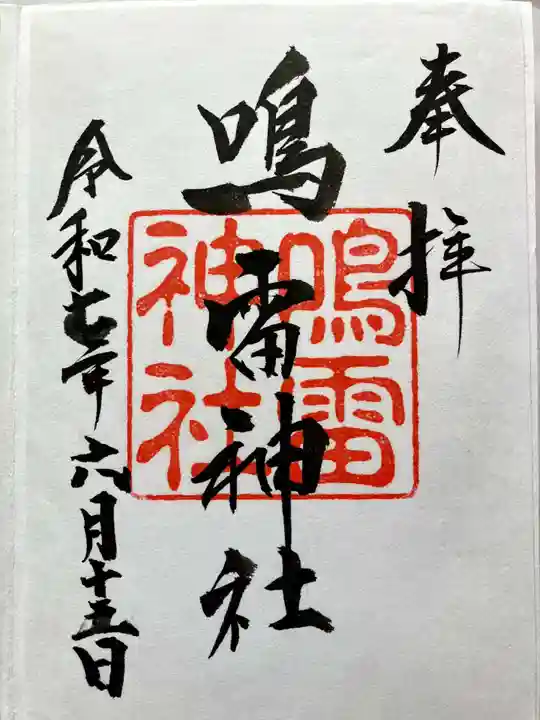 奉拝
鳴雷神社
鳴雷
神社
令和七年六月十五日